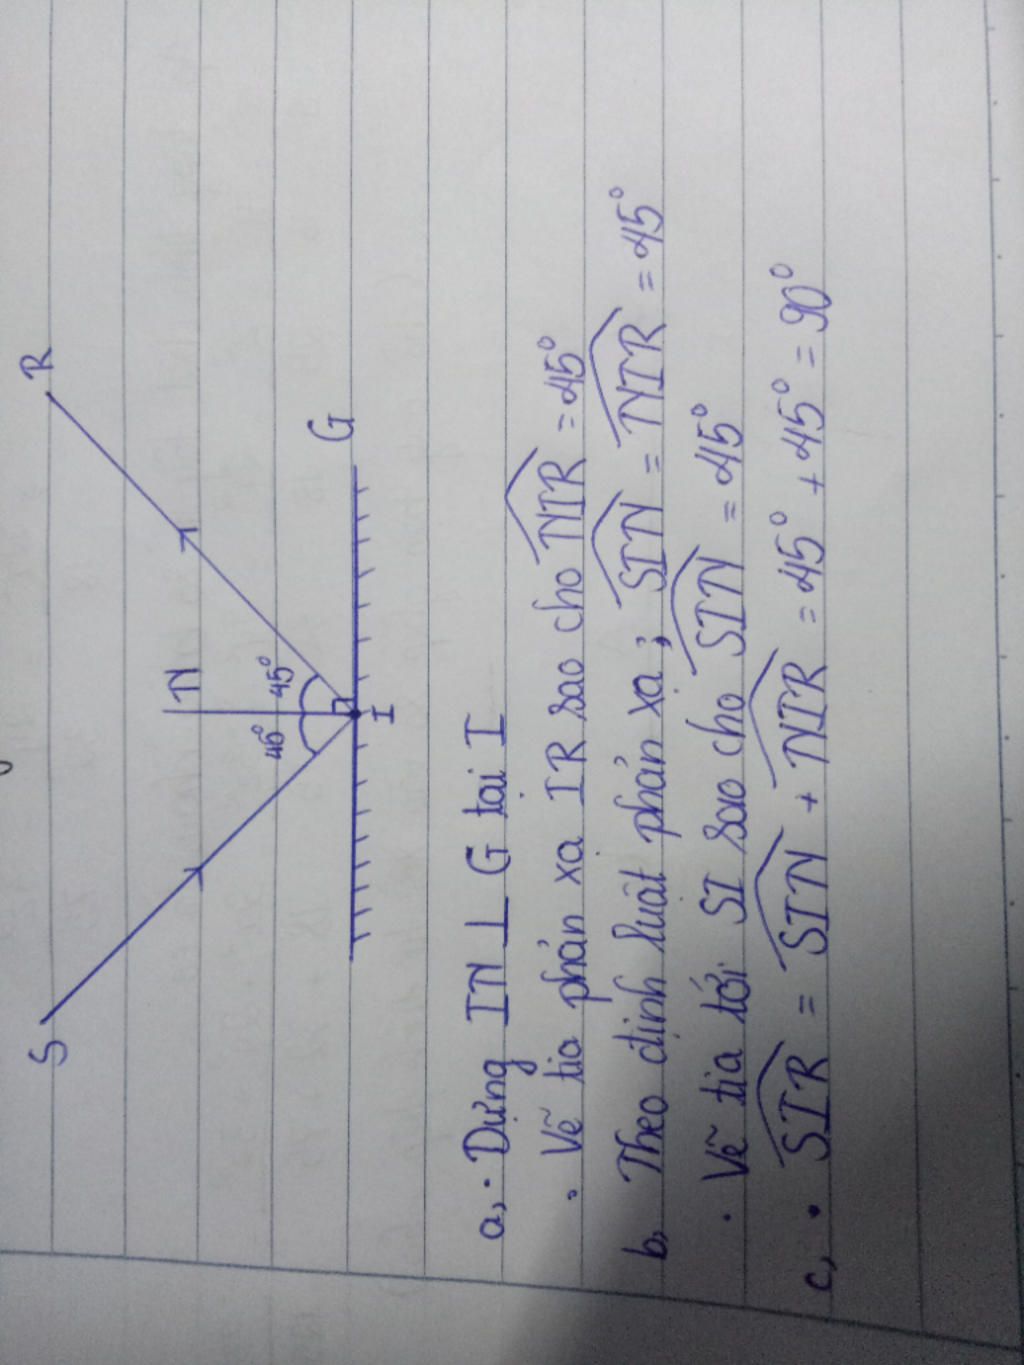 S
R
N
45°
45°
G
I
a, . Dựng IN ⊥ G tại I
. Vẽ tia phản xạ IR sao cho NIR = 45°
b, Theo định luật phản xạ ; SIN = NIR = 45°
. Vẽ tia tới SI sao cho SIN = 45°
c, . SIR = SIN + NIR = 45° + 45° = 90°